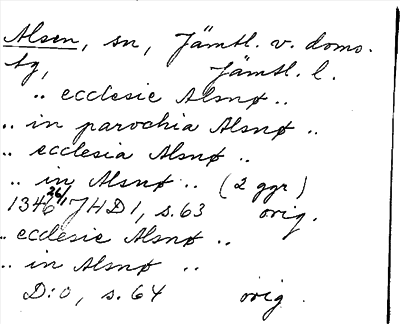 Alsen, sn, Jämtl. v. doms.
tg, Jämtl. l.
.. ecclesie Alsnø ..
.. in parochia Alsnø ..
.. ecclesia Alsnø ..
.. in Alsnø .. (2 ggr)
1346 26/1 JHD 1, s. 63 orig.
.. ecclesie Alsnø ..
.. in Alsnø ..
D:o, s. 64 orig.